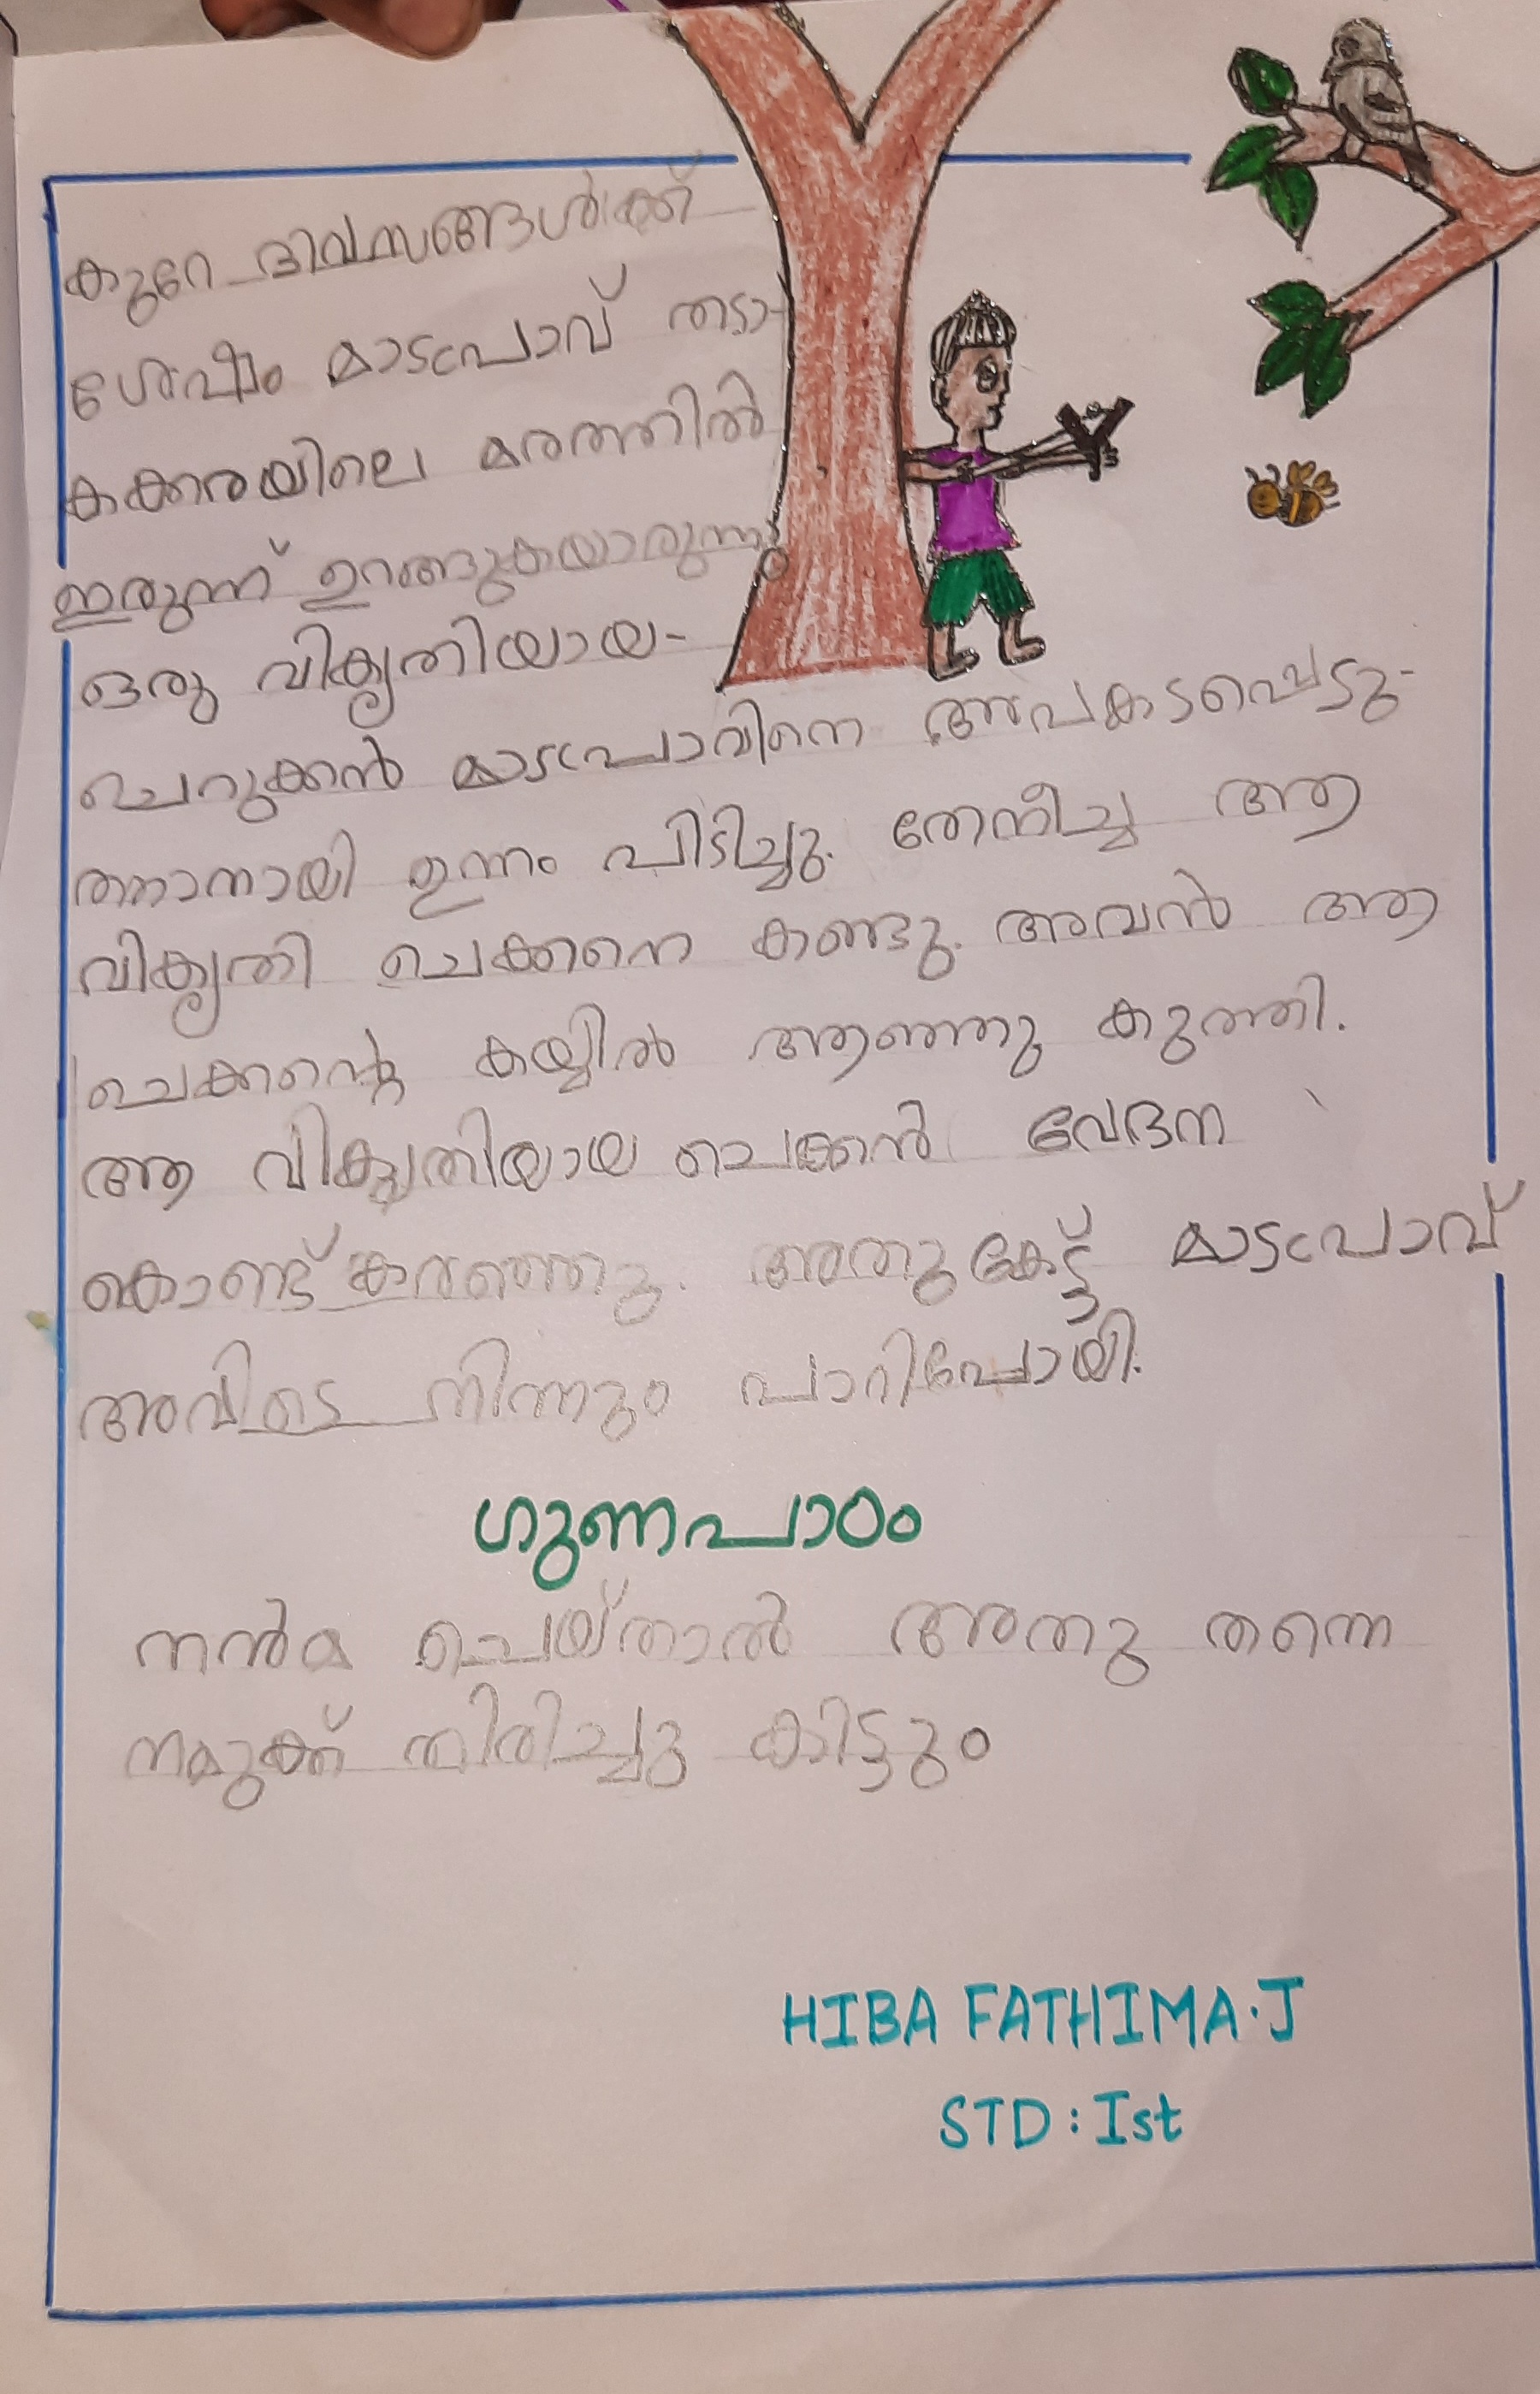 കുറേ ദിവസങ്ങൾക്ക്
ശേഷം മാടപ്രാവ് തടാ-
കക്കരയിലെ മരത്തിൽ
ഇരുന്ന് ഉറങ്ങുകയാരുന്നു
ഒരു വികൃതിയായ-
ചെറുക്കൻ മാടപ്രാവിനെ അപകടപ്പെടു-
ത്താനായി ഉന്നം പിടിച്ചു. തേനീച്ച ആ
വികൃതി ചെക്കനെ കണ്ടു. അവൻ ആ
ചെക്കന്റെ കയ്യിൽ ആഞ്ഞു കുത്തി.
ആ വികൃതിയായ ചെക്കൻ വേദന
കൊണ്ട് കരഞ്ഞു. അതുകേട്ട് മാടപ്രാവ്
അവിടെ നിന്നും പാറിപോയി.
ഗുണപാഠം
നൻമ ചെയ്താൽ അതു തന്നെ
നമുക്ക് തിരിച്ചു കിട്ടും
HIBA FATHIMA.J
STD : Ist